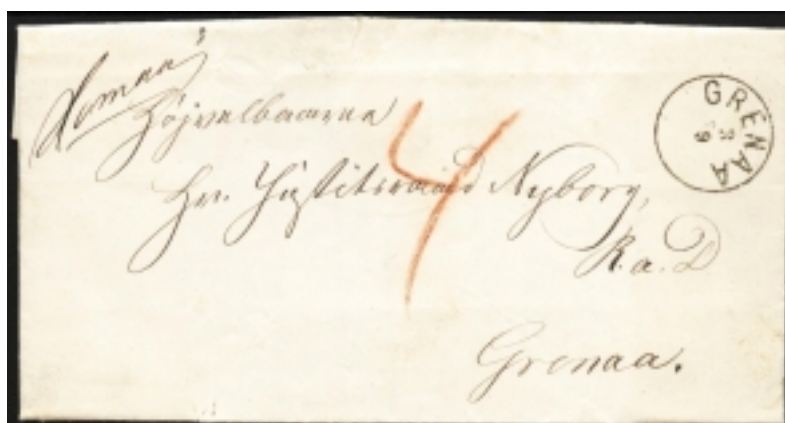 Højvelbaarne
Hr. Justitsraad Nyborg,
R. a. D
Grenaa.
4
GRENAA